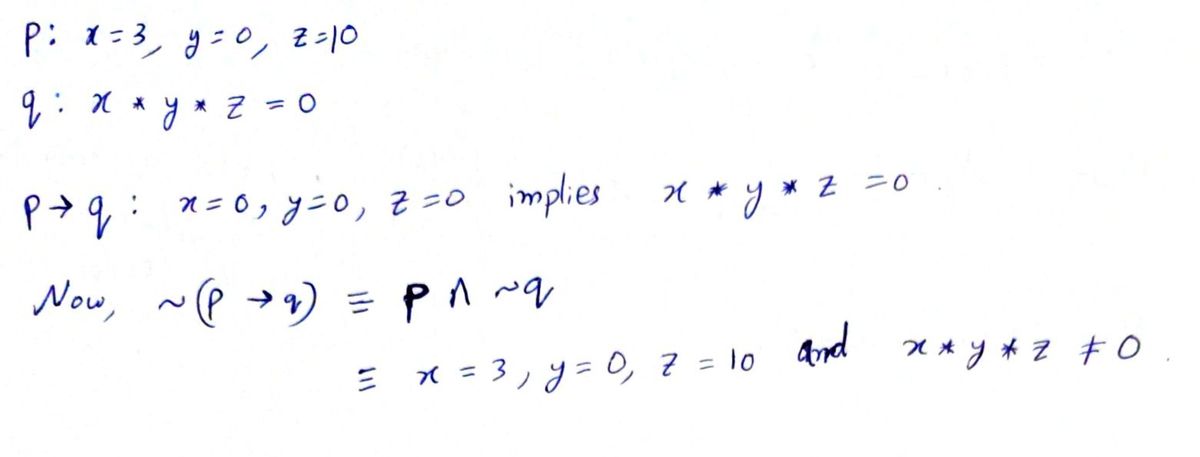 p: x = 3, y = 0, z = 10
q: x * y * z = 0
p → q : x = 0, y = 0, z = 0 implies x * y * z = 0.
Now, ~(p → q) ≡ p ∧ ~q
≡ x = 3, y = 0, z = 10 and x * y * z ≠ 0.